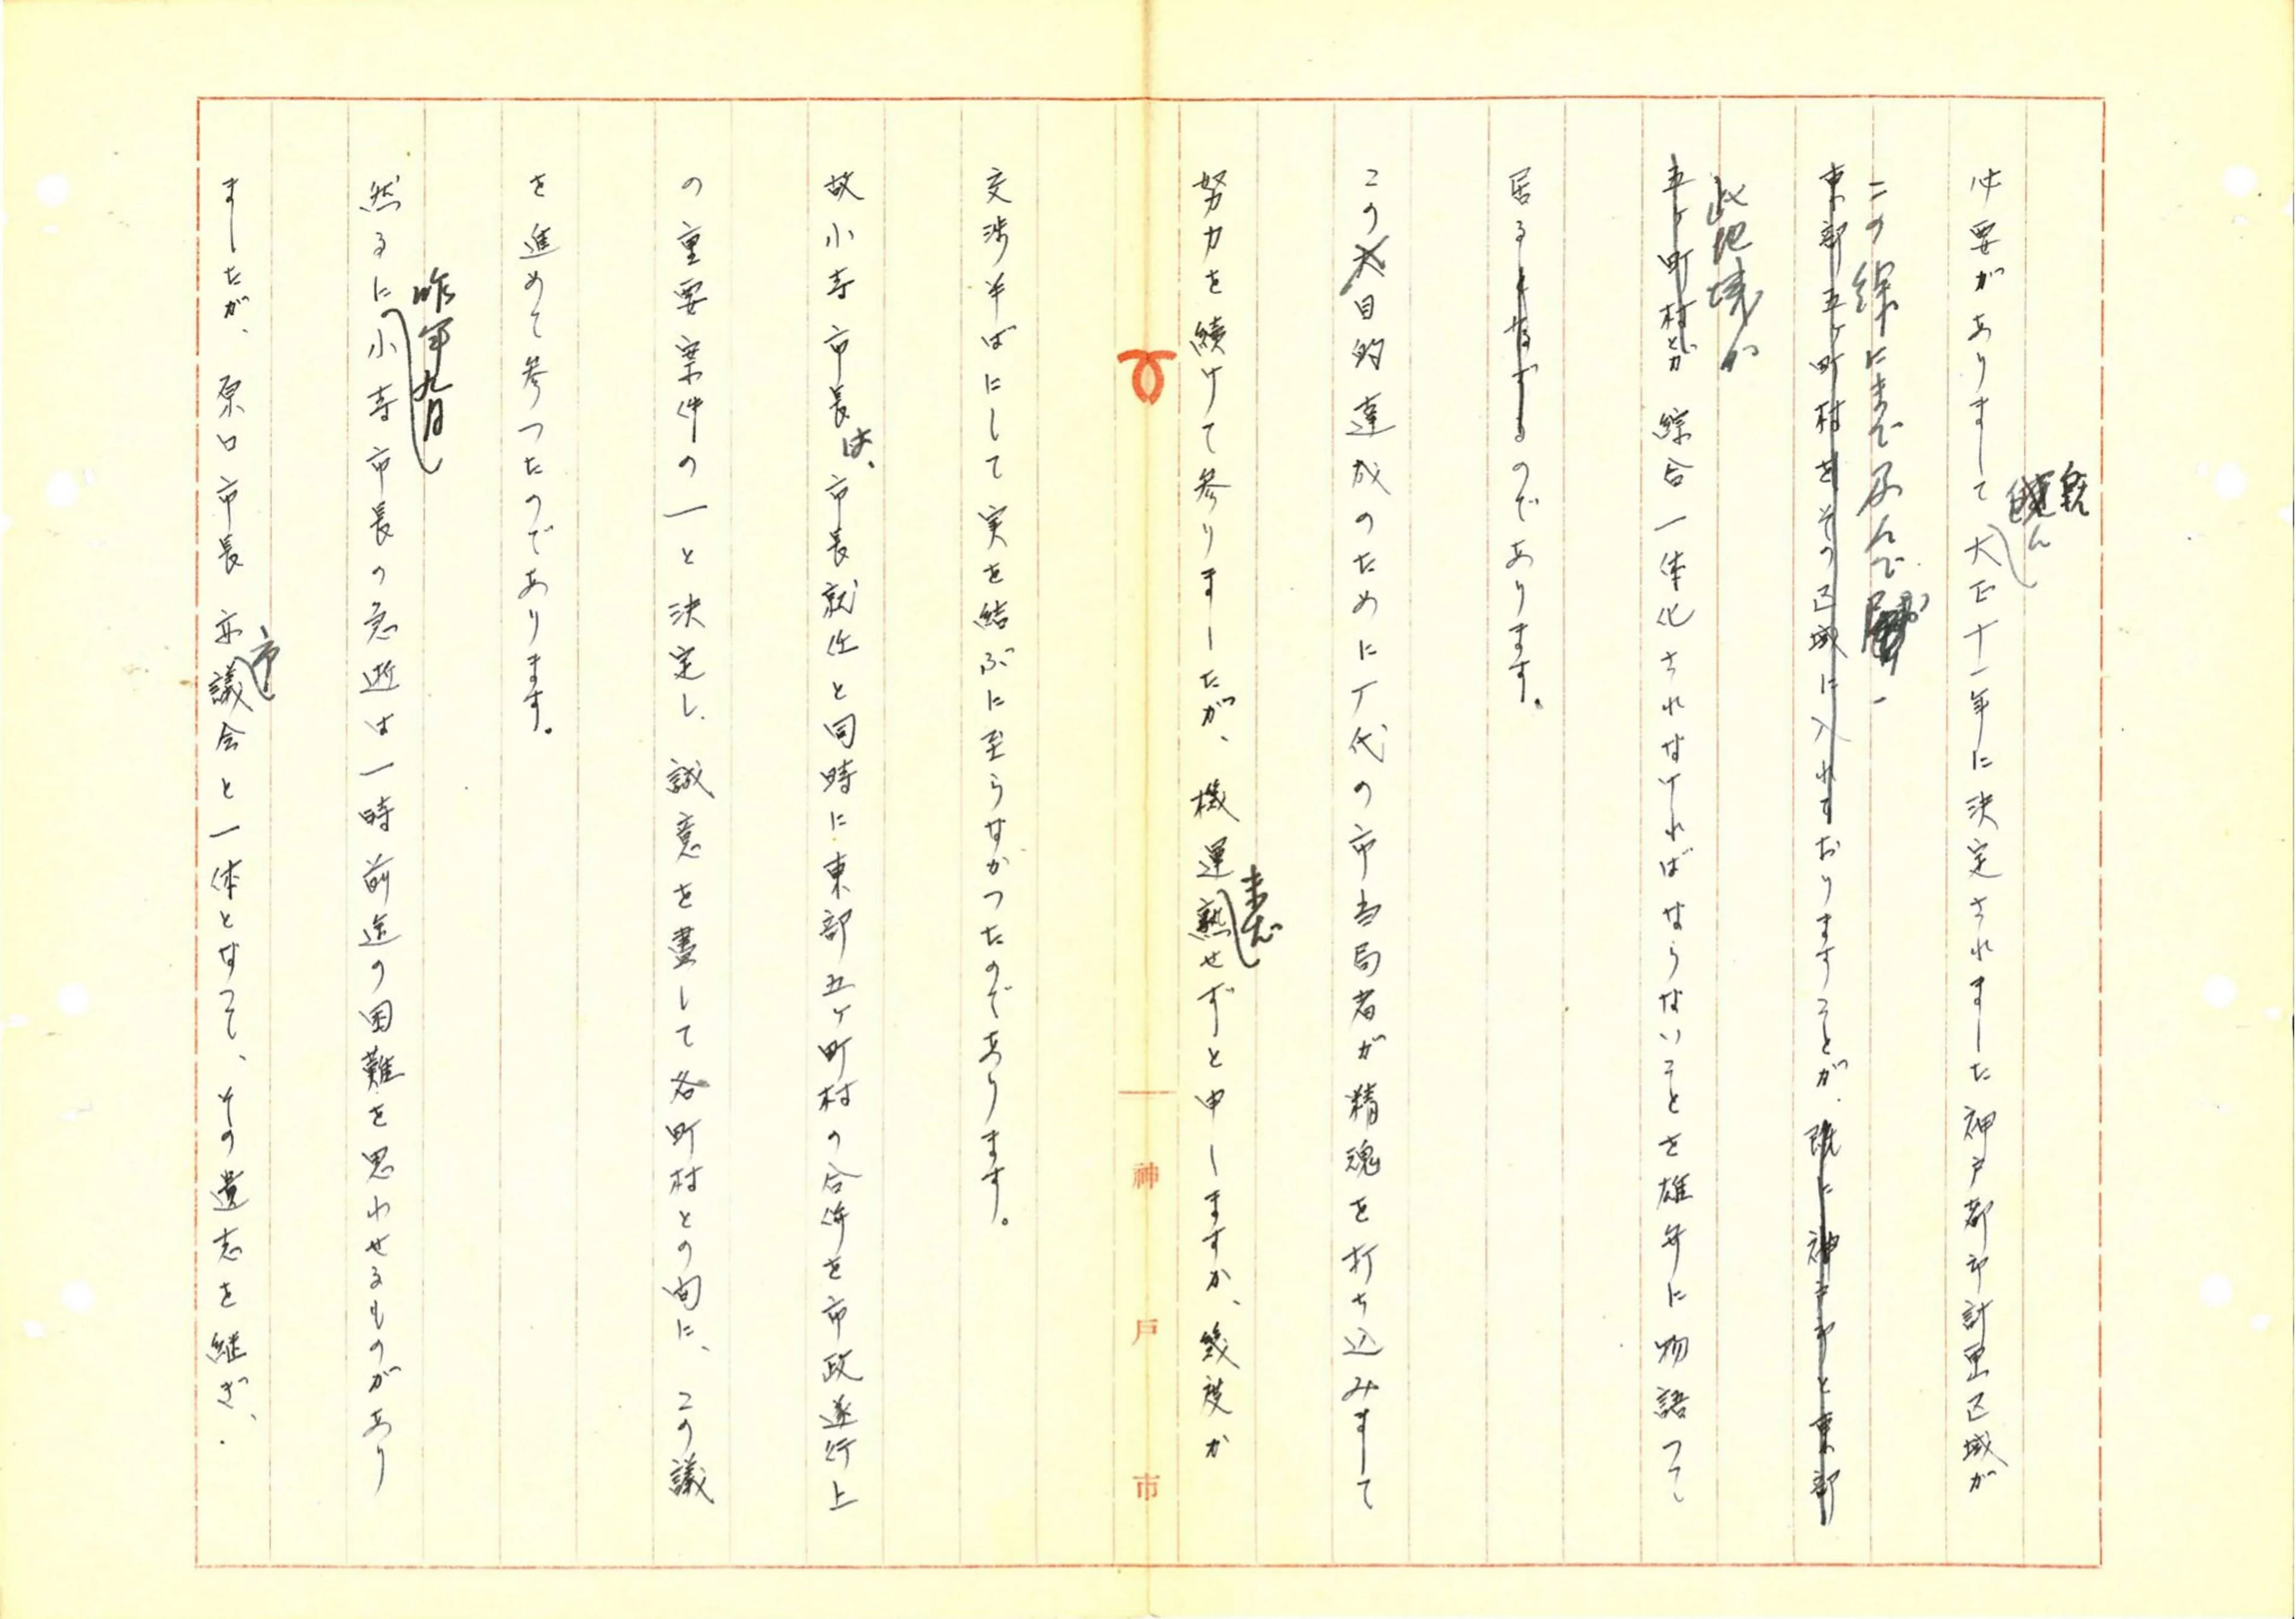 必要がありまして大正十一年に決定されました神戸都市計画区域が
既に
この線にまで及んで
東部五ヶ町村をその区域に入れておりますことが、既に神戸市と東部
此地域が
五ヶ町村とが綜合一体化されなければならないことを雄弁に物語つて
居るとなずるのであります。
この大目的達成のために歴代の市当局者が精魂を打ち込みまして
努力を続けて参りましたが、機運熟せずと申しますか、幾度か
未だ
交渉半ばにして実を結ぶに至らなかつたのであります。
神戸市
故小寺市長は、市長就任と同時に東部五ヶ町村の合併を市政遂行上
の重要案件の一と決定し、誠意を盡して各町村との間に、この議
を進めて参つたのであります。
昨年九月
然るに小寺市長の急逝は一時前途の困難を思わせるものがあり
ましたが、原口市長亦議会と一体となつて、その遺志を継ぎ、
市